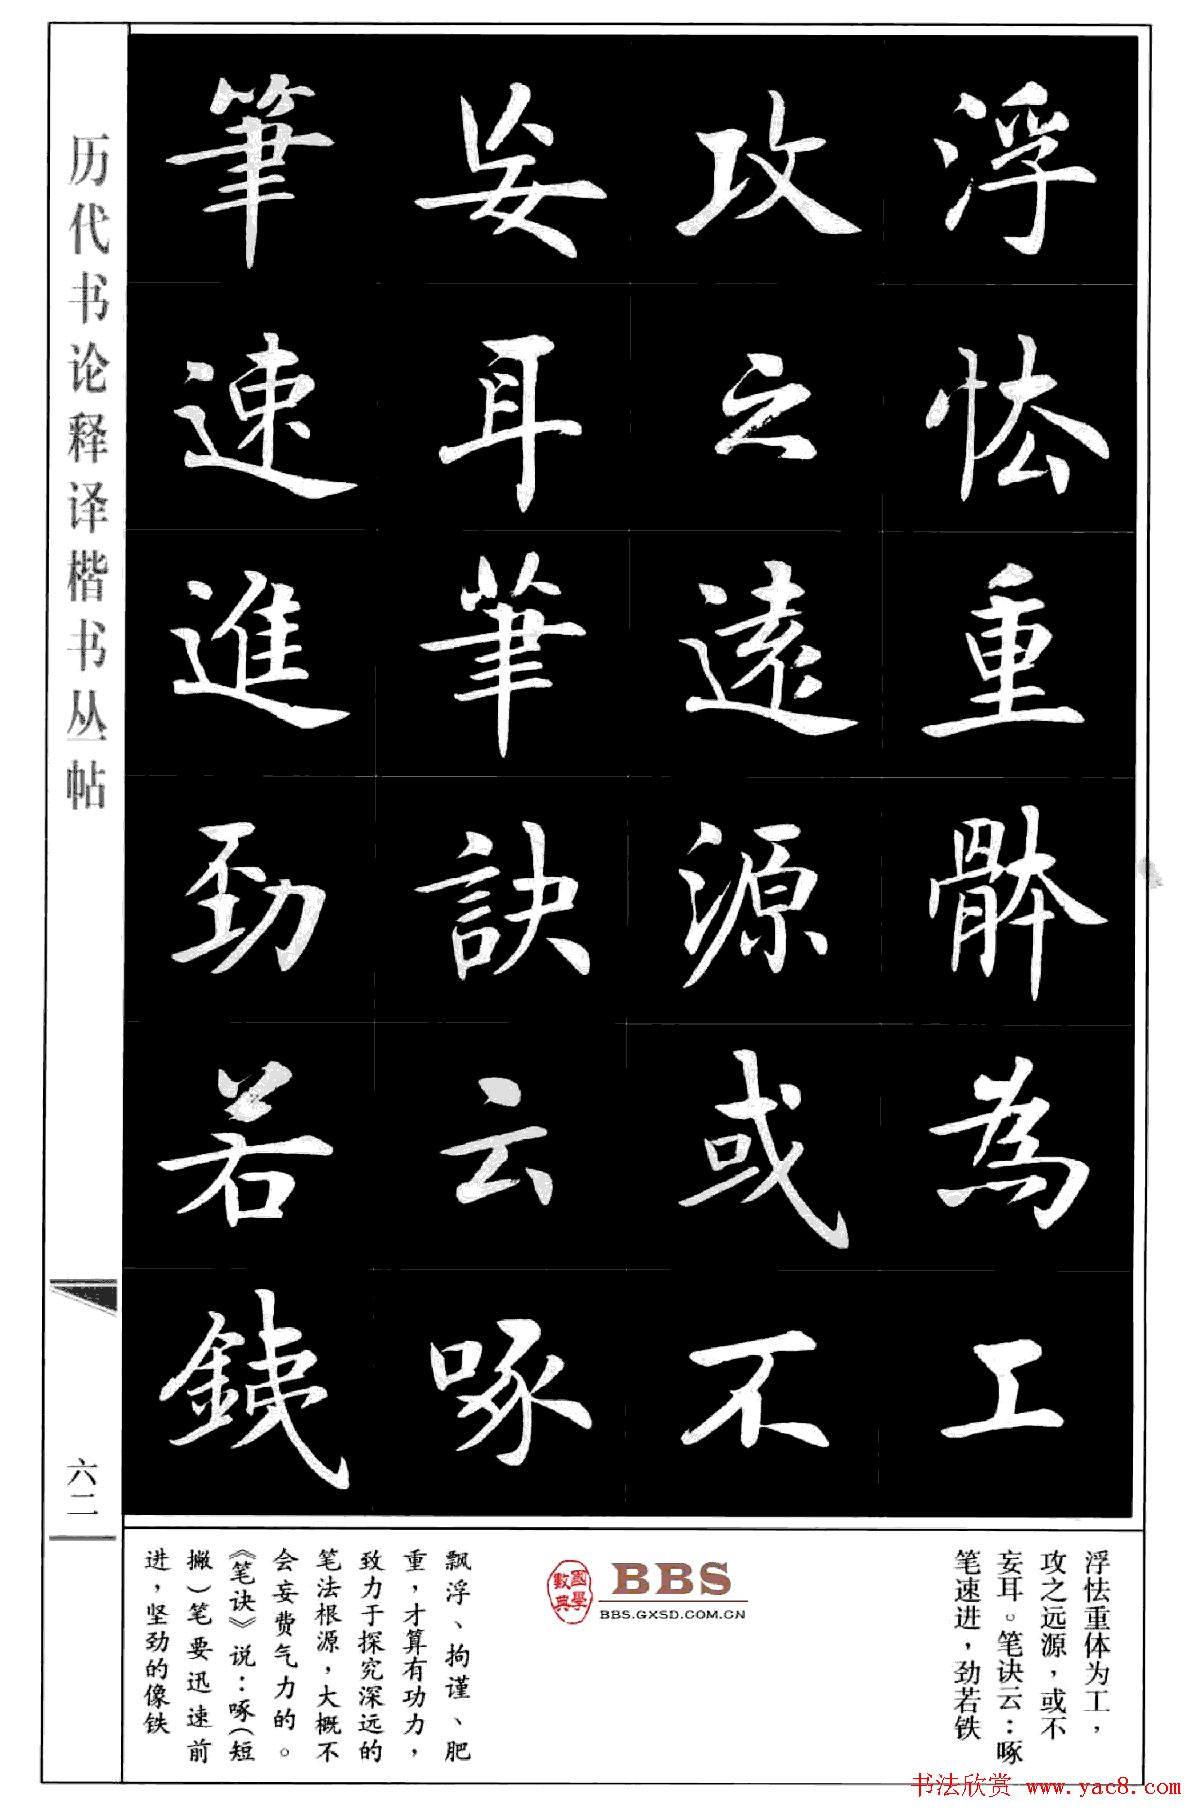 浮怯重骵為工
攻之遠源或不
妄耳筆訣云啄
筆速進勁若鐵
历代书论释译楷书丛帖
六二
浮怯重体为工，
攻之远源，或不
妄耳。笔诀云：啄
笔速进，劲若铁
國學數典
BBS
BBS.GXSD.COM.CN
飘浮、拘谨、肥
重，才算有功力，
致力于探究深远的
笔法根源，大概不
会妄费气力的。
《笔诀》说：啄（短
撇）笔要迅速前
进，坚劲的像铁
书法欣赏 www.yac8.com